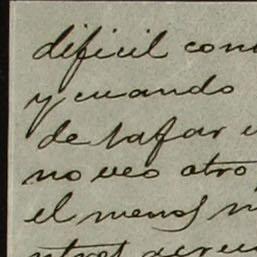 dificil con
y cuando
de tafar
no veo otro
el menos m